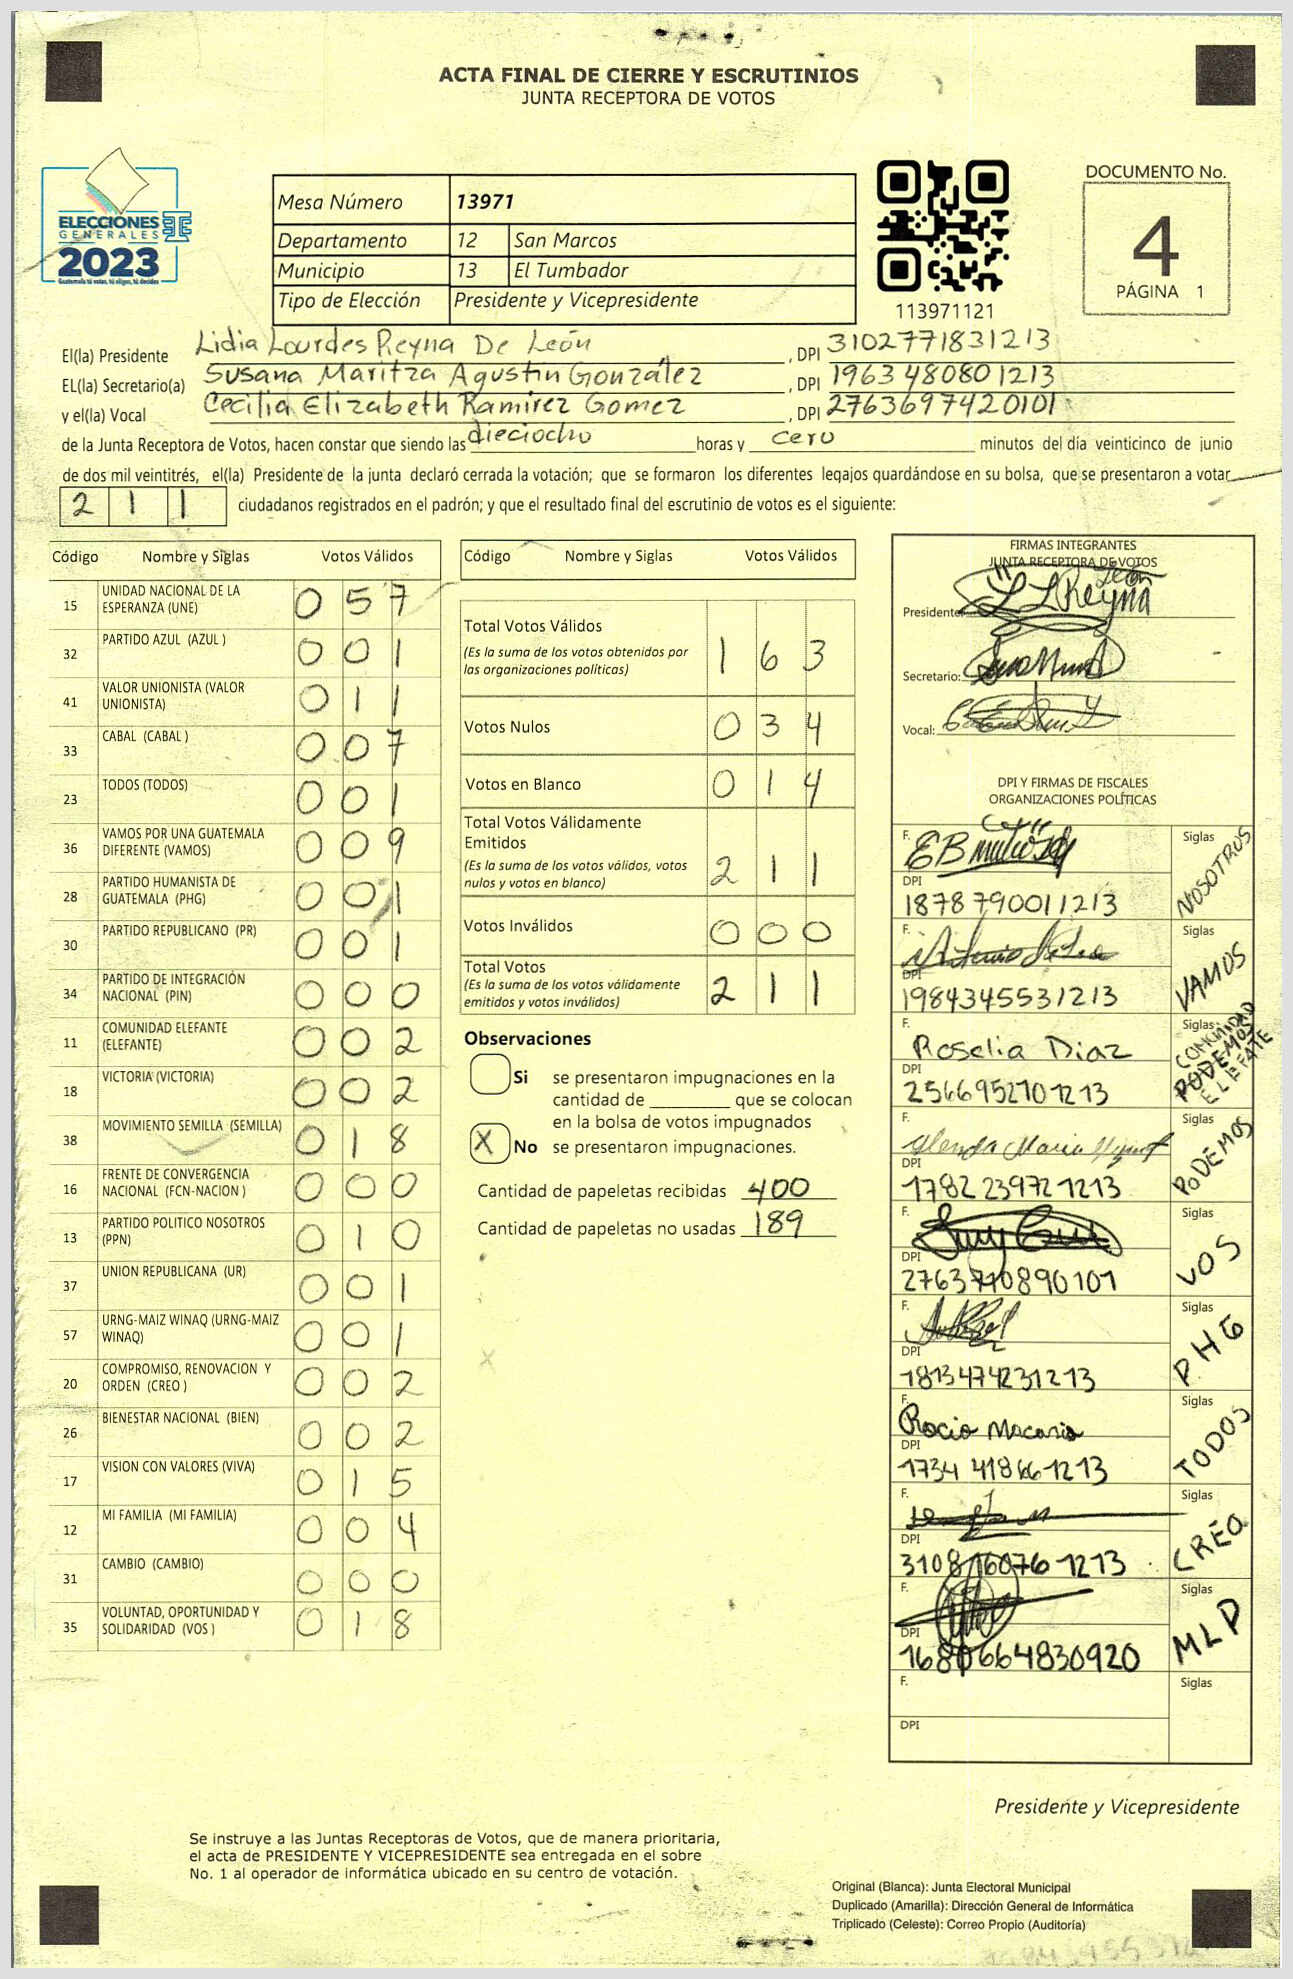 ACTA FINAL DE CIERRE Y ESCRUTINIOS
JUNTA RECEPTORA DE VOTOS
ELECCIONES
GENERALES
2023
Guatemala tú votas, tú eliges, tú decides
Mesa Número 13971
Departamento 12 San Marcos
Municipio 13 El Tumbador
Tipo de Elección Presidente y Vicepresidente
113971121
DOCUMENTO No.
4
PÁGINA 1
El(la) Presidente Lidia Lourdes Reyna De León , DPI 3102771831213
EL(la) Secretario(a) Susana Maritza Agustin González , DPI 1963480801213
y el(la) Vocal Cecilia Elizabeth Ramirez Gomez , DPI 2763697420101
de la Junta Receptora de Votos, hacen constar que siendo las dieciocho horas y cero minutos del día veinticinco de junio
de dos mil veintitrés, el(la) Presidente de la junta declaró cerrada la votación; que se formaron los diferentes legajos quardándose en su bolsa, que se presentaron a votar
211 ciudadanos registrados en el padrón; y que el resultado final del escrutinio de votos es el siguiente:
Código Nombre y Siglas Votos Válidos
15 UNIDAD NACIONAL DE LA ESPERANZA (UNE) 057
32 PARTIDO AZUL (AZUL ) 001
41 VALOR UNIONISTA (VALOR UNIONISTA) 011
33 CABAL (CABAL ) 007
23 TODOS (TODOS) 001
36 VAMOS POR UNA GUATEMALA DIFERENTE (VAMOS) 009
28 PARTIDO HUMANISTA DE GUATEMALA (PHG) 001
30 PARTIDO REPUBLICANO (PR) 001
34 PARTIDO DE INTEGRACIÓN NACIONAL (PIN) 000
11 COMUNIDAD ELEFANTE (ELEFANTE) 002
18 VICTORIA (VICTORIA) 002
38 MOVIMIENTO SEMILLA (SEMILLA) 018
16 FRENTE DE CONVERGENCIA NACIONAL (FCN-NACION ) 000
13 PARTIDO POLITICO NOSOTROS (PPN) 010
37 UNION REPUBLICANA (UR) 001
57 URNG-MAIZ WINAQ (URNG-MAIZ WINAQ) 001
20 COMPROMISO, RENOVACION Y ORDEN (CREO ) 002
26 BIENESTAR NACIONAL (BIEN) 002
17 VISION CON VALORES (VIVA) 015
12 MI FAMILIA (MI FAMILIA) 004
31 CAMBIO (CAMBIO) 000
35 VOLUNTAD, OPORTUNIDAD Y SOLIDARIDAD (VOS ) 018
Código Nombre y Siglas Votos Válidos
Total Votos Válidos 163
(Es la suma de los votos obtenidos por
las organizaciones políticas)
Votos Nulos 034
Votos en Blanco 014
Total Votos Válidamente
Emitidos 211
(Es la suma de los votos válidos, votos
nulos y votos en blanco)
Votos Inválidos 000
Total Votos 211
(Es la suma de los votos válidamente
emitidos y votos inválidos)
Observaciones
Si se presentaron impugnaciones en la
cantidad de ________ que se colocan
en la bolsa de votos impugnados
X No se presentaron impugnaciones.
Cantidad de papeletas recibidas 400
Cantidad de papeletas no usadas 189
FIRMAS INTEGRANTES
JUNTA RECEPTORA DE VOTOS
Presidente: L L Reyna León
Secretario:
Vocal:
DPI Y FIRMAS DE FISCALES
ORGANIZACIONES POLÍTICAS
F. Siglas NOSOTROS
DPI 1878790011213
F. Siglas VAMOS
DPI 1984345531213
F. Roselia Diaz Siglas COMUNIDAD PODEMOS ELEFATE
DPI 2566952701213
F. Glenda Maria Siglas PODEMOS
DPI 1782239721213
F. Siglas VOS
DPI 2763710890101
F. Siglas PHG
DPI 1813474231213
F. Rocio Macario Siglas TODOS
DPI 1734418661213
F. Siglas CREO
DPI 3108160761213
F. Siglas MLP
DPI 1680664830920
F. Siglas
DPI
Presidente y Vicepresidente
Se instruye a las Juntas Receptoras de Votos, que de manera prioritaria,
el acta de PRESIDENTE Y VICEPRESIDENTE sea entregada en el sobre
No. 1 al operador de informática ubicado en su centro de votación.
Original (Blanca): Junta Electoral Municipal
Duplicado (Amarilla): Dirección General de Informática
Triplicado (Celeste): Correo Propio (Auditoría)